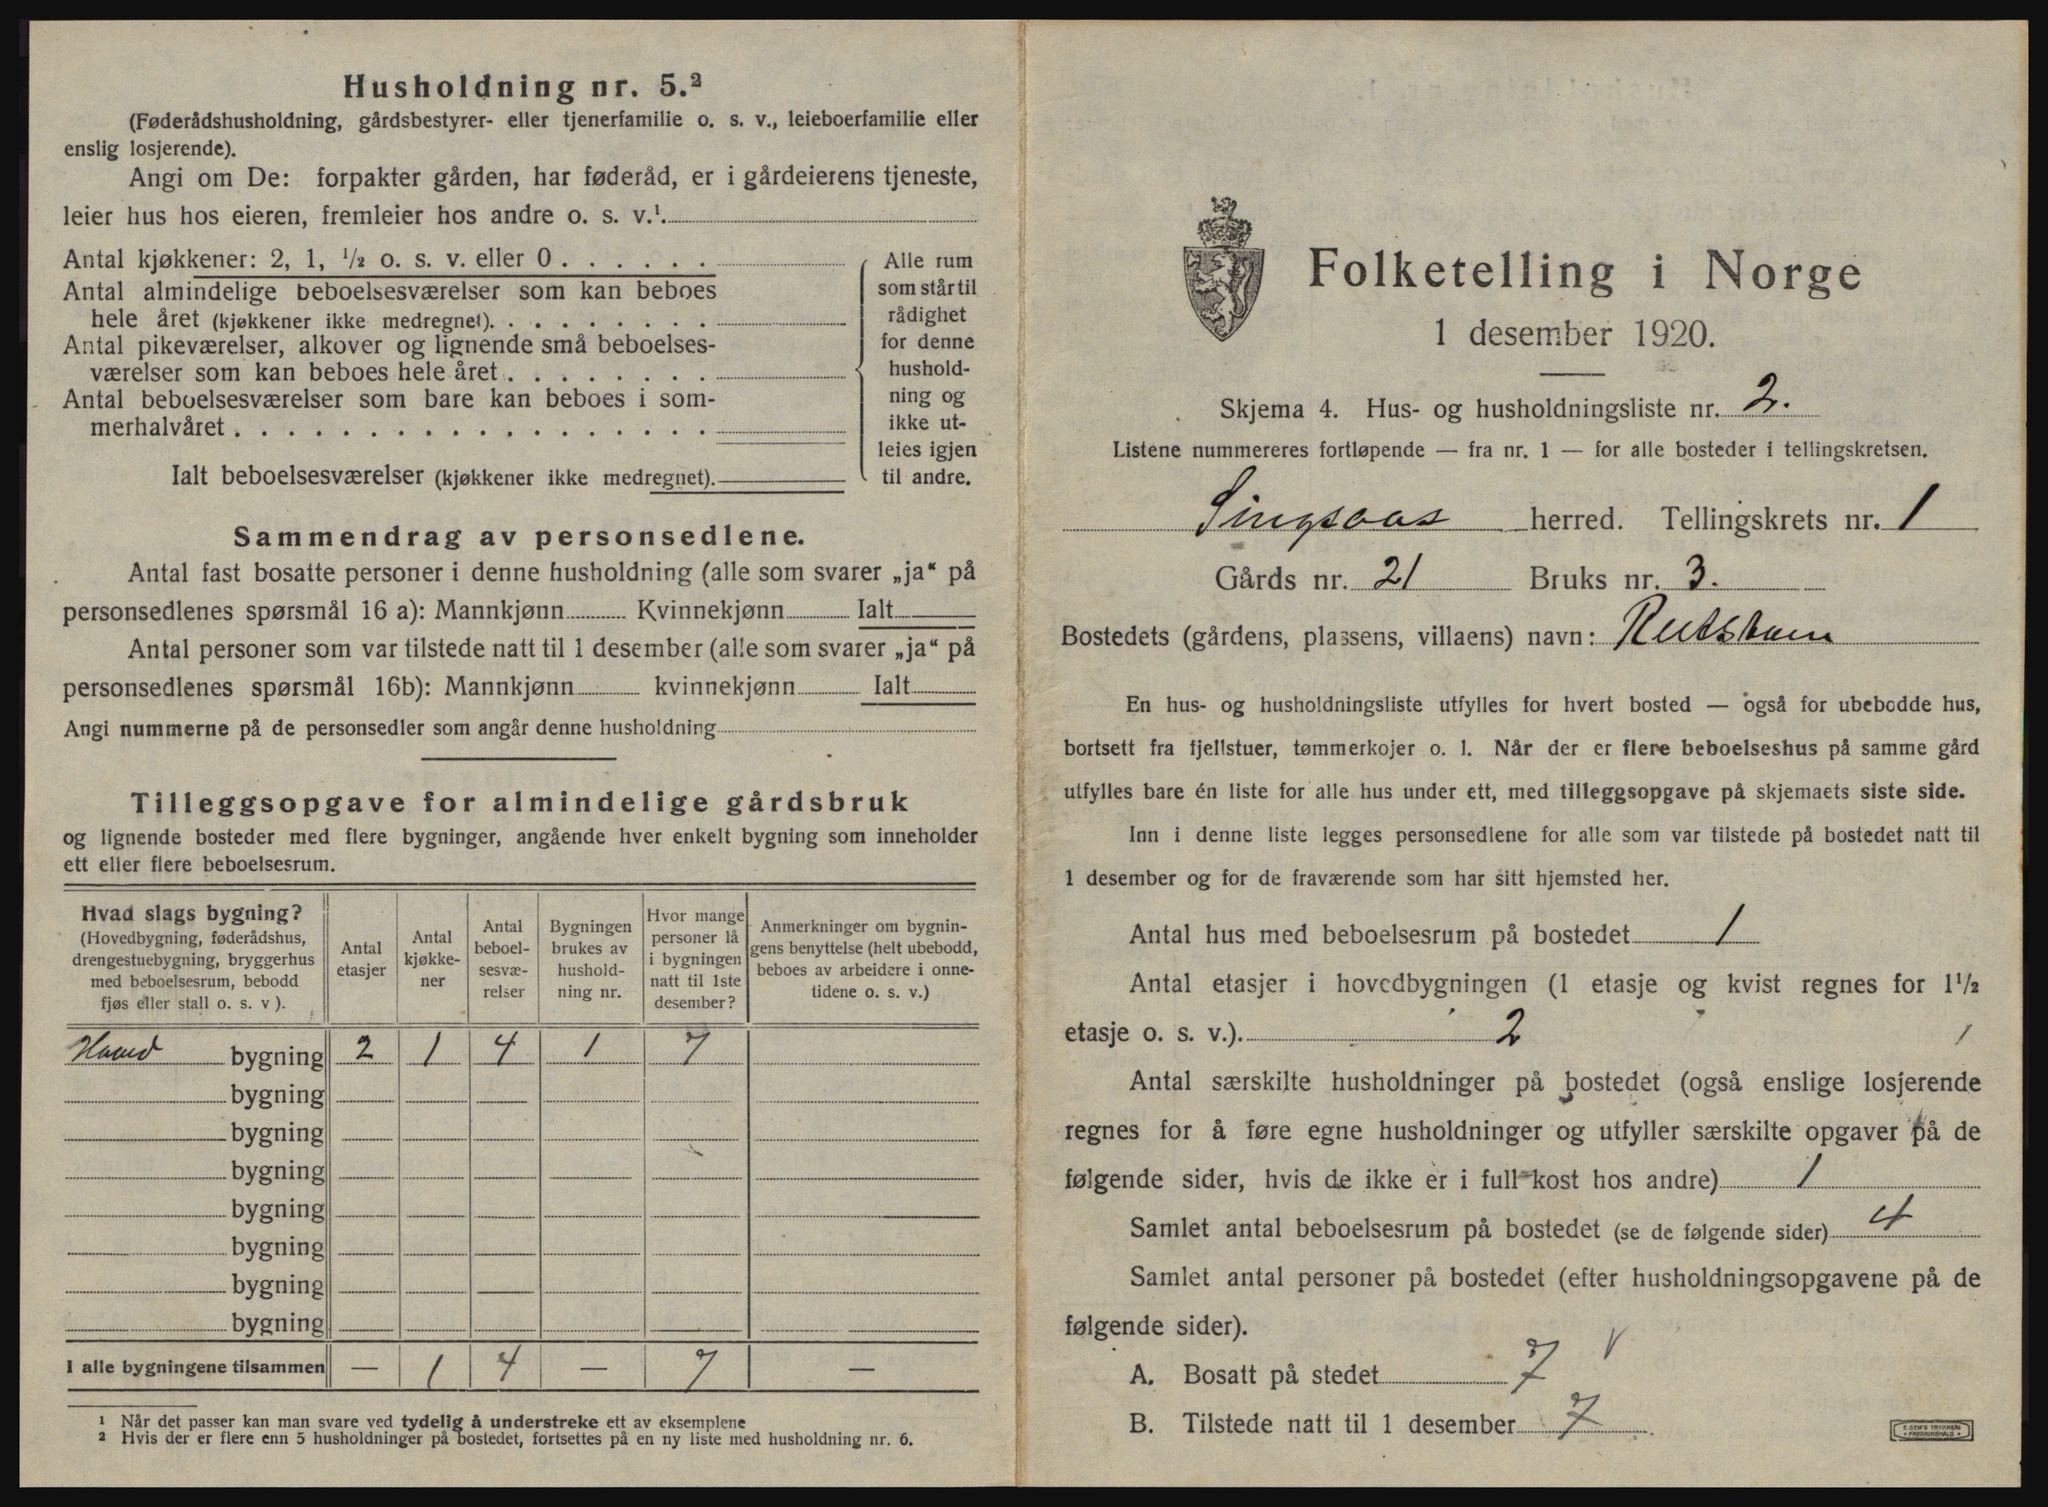 Husholdning nr. 5.²
(Føderådshusholdning, gårdsbestyrer- eller tjenerfamilie o. s. v., leieboerfamilie eller
enslig losjerende).
Angi om De: forpakter gården, har føderåd, er i gårdeierens tjeneste,
leier hus hos eieren, fremleier hos andre o. s. v.¹.
Antal kjøkkener: 2, 1, ½ o. s. v. eller 0 . . . . . .
Antal almindelige beboelsesværelser som kan beboes
hele året (kjøkkener ikke medregnet). . . . . . . . .
Antal pikeværelser, alkover og lignende små beboelses-
værelser som kan beboes hele året . . . . . . . .
Antal beboelsesværelser som bare kan beboes i som-
merhalvåret . . . . . . . . . . . . . . . . . .
Ialt beboelsesværelser (kjøkkener ikke medregnet).
Alle rum
som står til
rådighet
for denne
hushold-
ning og
ikke ut-
leies igjen
til andre.
Sammendrag av personsedlene.
Antal fast bosatte personer i denne husholdning (alle som svarer „ja“ på
personsedlenes spørsmål 16 a): Mannkjønn Kvinnekjønn Ialt
Antal personer som var tilstede natt til 1 desember (alle som svarer „ja“ på
personsedlenes spørsmål 16b): Mannkjønn kvinnekjønn Ialt
Angi nummerne på de personsedler som angår denne husholdning
Tilleggsopgave for almindelige gårdsbruk
og lignende bosteder med flere bygninger, angående hver enkelt bygning som inneholder
ett eller flere beboelsesrum.
Hvad slags bygning?
(Hovedbygning, føderådshus,
drengestuebygning, bryggerhus
med beboelsesrum, bebodd
fjøs eller stall o. s. v ).
Antal
etasjer
Antal
kjøkke-
ner
Antal
beboel-
sesvæ-
relser
Bygningen
brukes av
hushold-
ning nr.
Hvor mange
personer lå
i bygningen
natt til 1ste
desember?
Anmerkninger om bygnin-
gens benyttelse (helt ubebodd,
beboes av arbeidere i onne-
tidene o. s. v.)
Hoved bygning 2 1 4 1 7
bygning
bygning
bygning
bygning
bygning
bygning
bygning
I alle bygningene tilsammen — 1 4 — 7 —
¹ Når det passer kan man svare ved tydelig å understreke ett av eksemplene
² Hvis der er flere enn 5 husholdninger på bostedet, fortsettes på en ny liste med husholdning nr. 6.
Folketelling i Norge
1 desember 1920.
Skjema 4. Hus- og husholdningsliste nr. 2.
Listene nummereres fortløpende — fra nr. 1 — for alle bosteder i tellingskretsen.
Singsaas herred. Tellingskrets nr. 1
Gårds nr. 21 Bruks nr. 3.
Bostedets (gårdens, plassens, villaens) navn:
En hus- og husholdningsliste utfylles for hvert bosted — også for ubebodde hus,
bortsett fra fjellstuer, tømmerkojer o. l. Når der er flere beboelseshus på samme gård
utfylles bare én liste for alle hus under ett, med tilleggsopgave på skjemaets siste side.
Inn i denne liste legges personsedlene for alle som var tilstede på bostedet natt til
1 desember og for de fraværende som har sitt hjemsted her.
Antal hus med beboelsesrum på bostedet 1
Antal etasjer i hovedbygningen (1 etasje og kvist regnes for 1½
etasje o. s. v.). 2
Antal særskilte husholdninger på bostedet (også enslige losjerende
regnes for å føre egne husholdninger og utfyller særskilte opgaver på de
følgende sider, hvis de ikke er i full kost hos andre) 1
Samlet antal beboelsesrum på bostedet (se de følgende sider) 4
Samlet antal personer på bostedet (efter husholdningsopgavene på de
følgende sider).
A. Bosatt på stedet 7 v
B. Tilstede natt til 1 desember 7